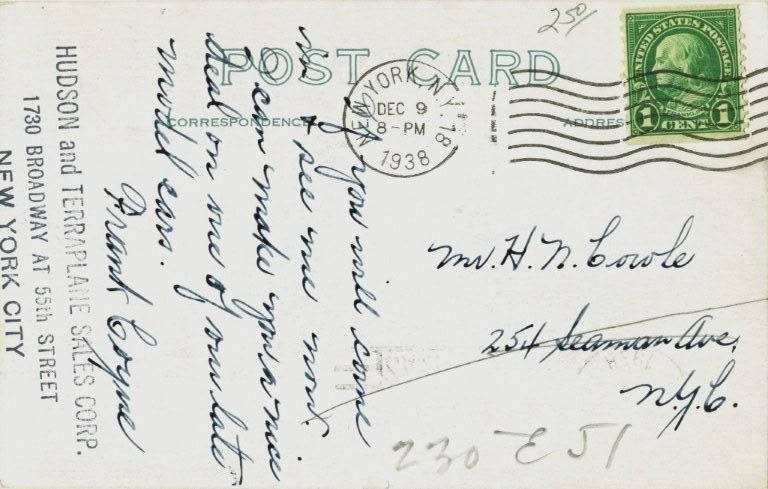 250/
POST CARD
CORRESPONDENCE
ADDRESS
NEW YORK, N.Y. 18
DEC 9
8-PM
1938
UNITED STATES POSTAGE
1 CENT 1
If you will come
in & see me now.
I can make you a nice
deal on one of our late
model cars.
Frank Coyne
HUDSON and TERRAPLANE SALES CORP.
1730 BROADWAY AT 55th STREET
NEW YORK CITY
Mr. H. N. Cowle
254 Seaman Ave.
N.Y.C.
230 E 51